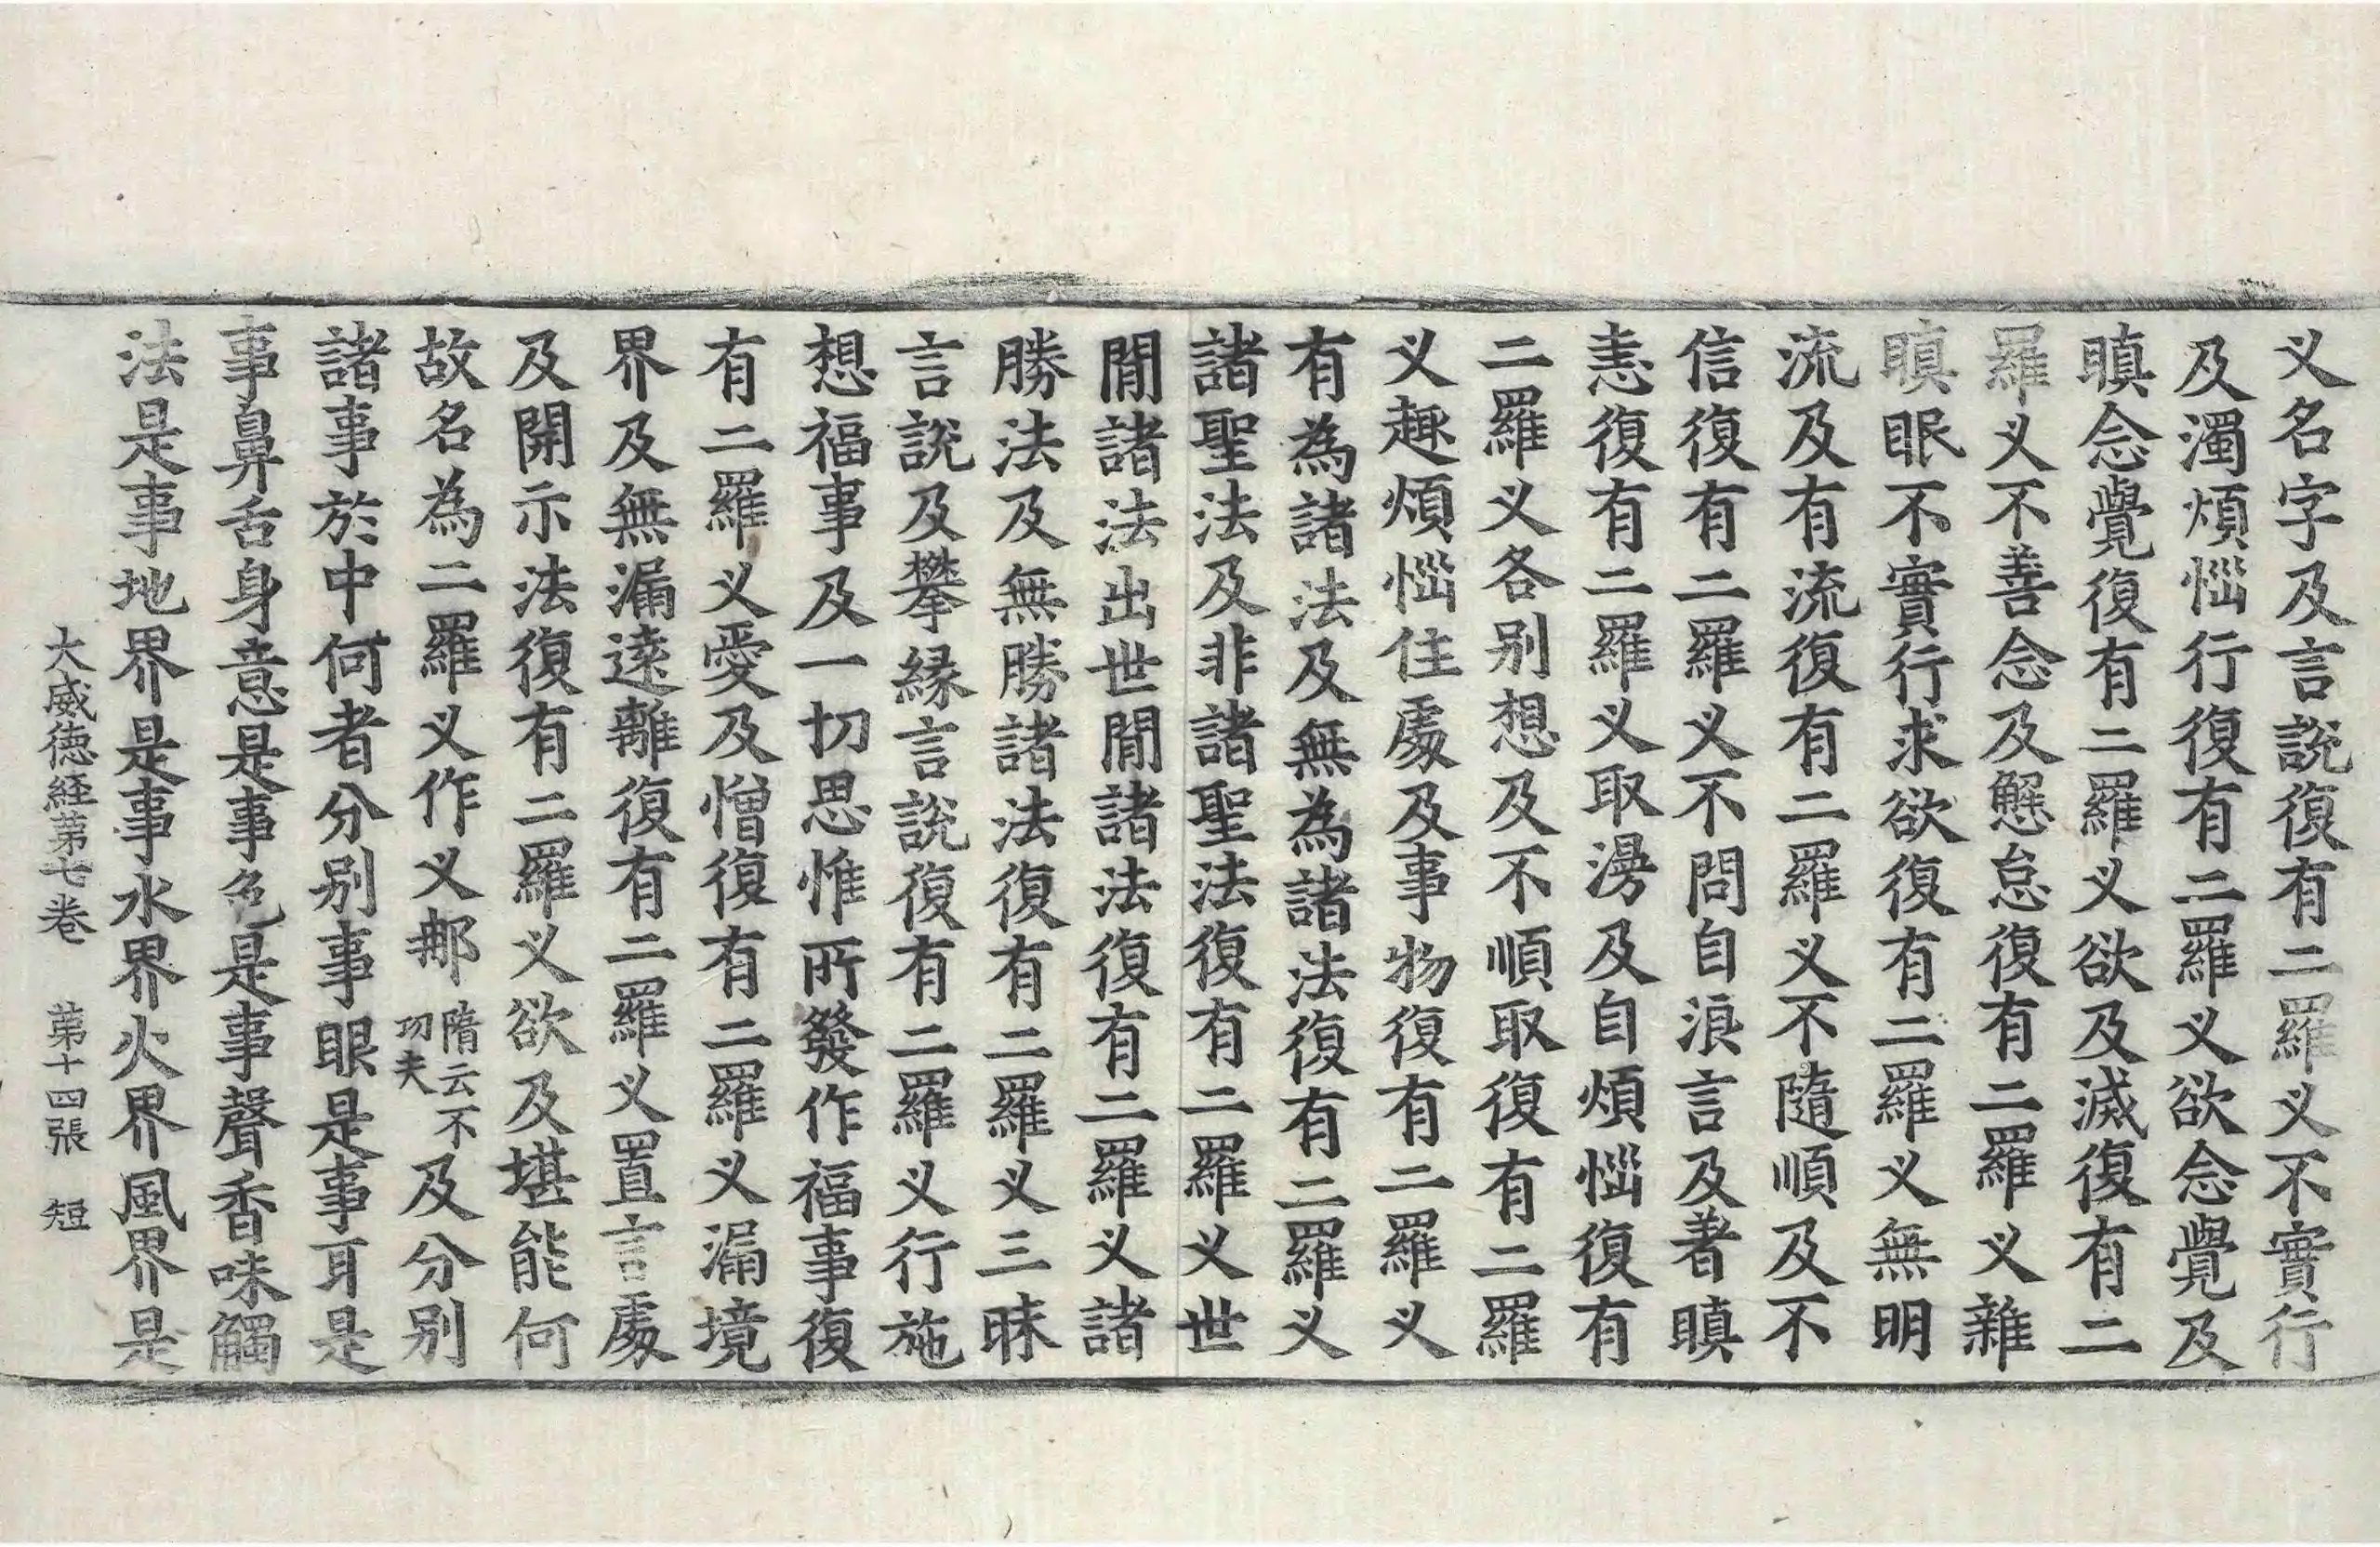 义名字及言說復有二羅义不實行
及濁煩惱行復有二羅义欲念覺及
瞋念覺復有二羅义欲及滅復有二
羅义不善念及懈怠復有二羅义雜
瞋眼不實行求欲復有二羅义無明
流及有流復有二羅义不隨順及不
信復有二羅义不問自浪言及著瞋
恚復有二羅义取澇及自煩惱復有
二羅义各别想及不順取復有二羅
义趣煩惱住處及事物復有二羅义
有為諸法及無為諸法復有二羅义
諸聖法及非諸聖法復有二羅义世
間諸法出世間諸法復有二羅义諸
勝法及無勝諸法復有二羅义三昧
言說及攀縁言說復有二羅义行施
想福事及一切思惟所發作福事復
有二羅义愛及憎復有二羅义漏境
界及無漏遠離復有二羅义置言處
及開示法復有二羅义欲及堪能何
故名為二羅义作义那隋云不功夫及分别
諸事於中何者分别事眼是事耳是
事鼻舌身意是事色是事聲香味觸
法是事地界是事水界火界風界是
大威徳経苐七卷 苐十四張 短